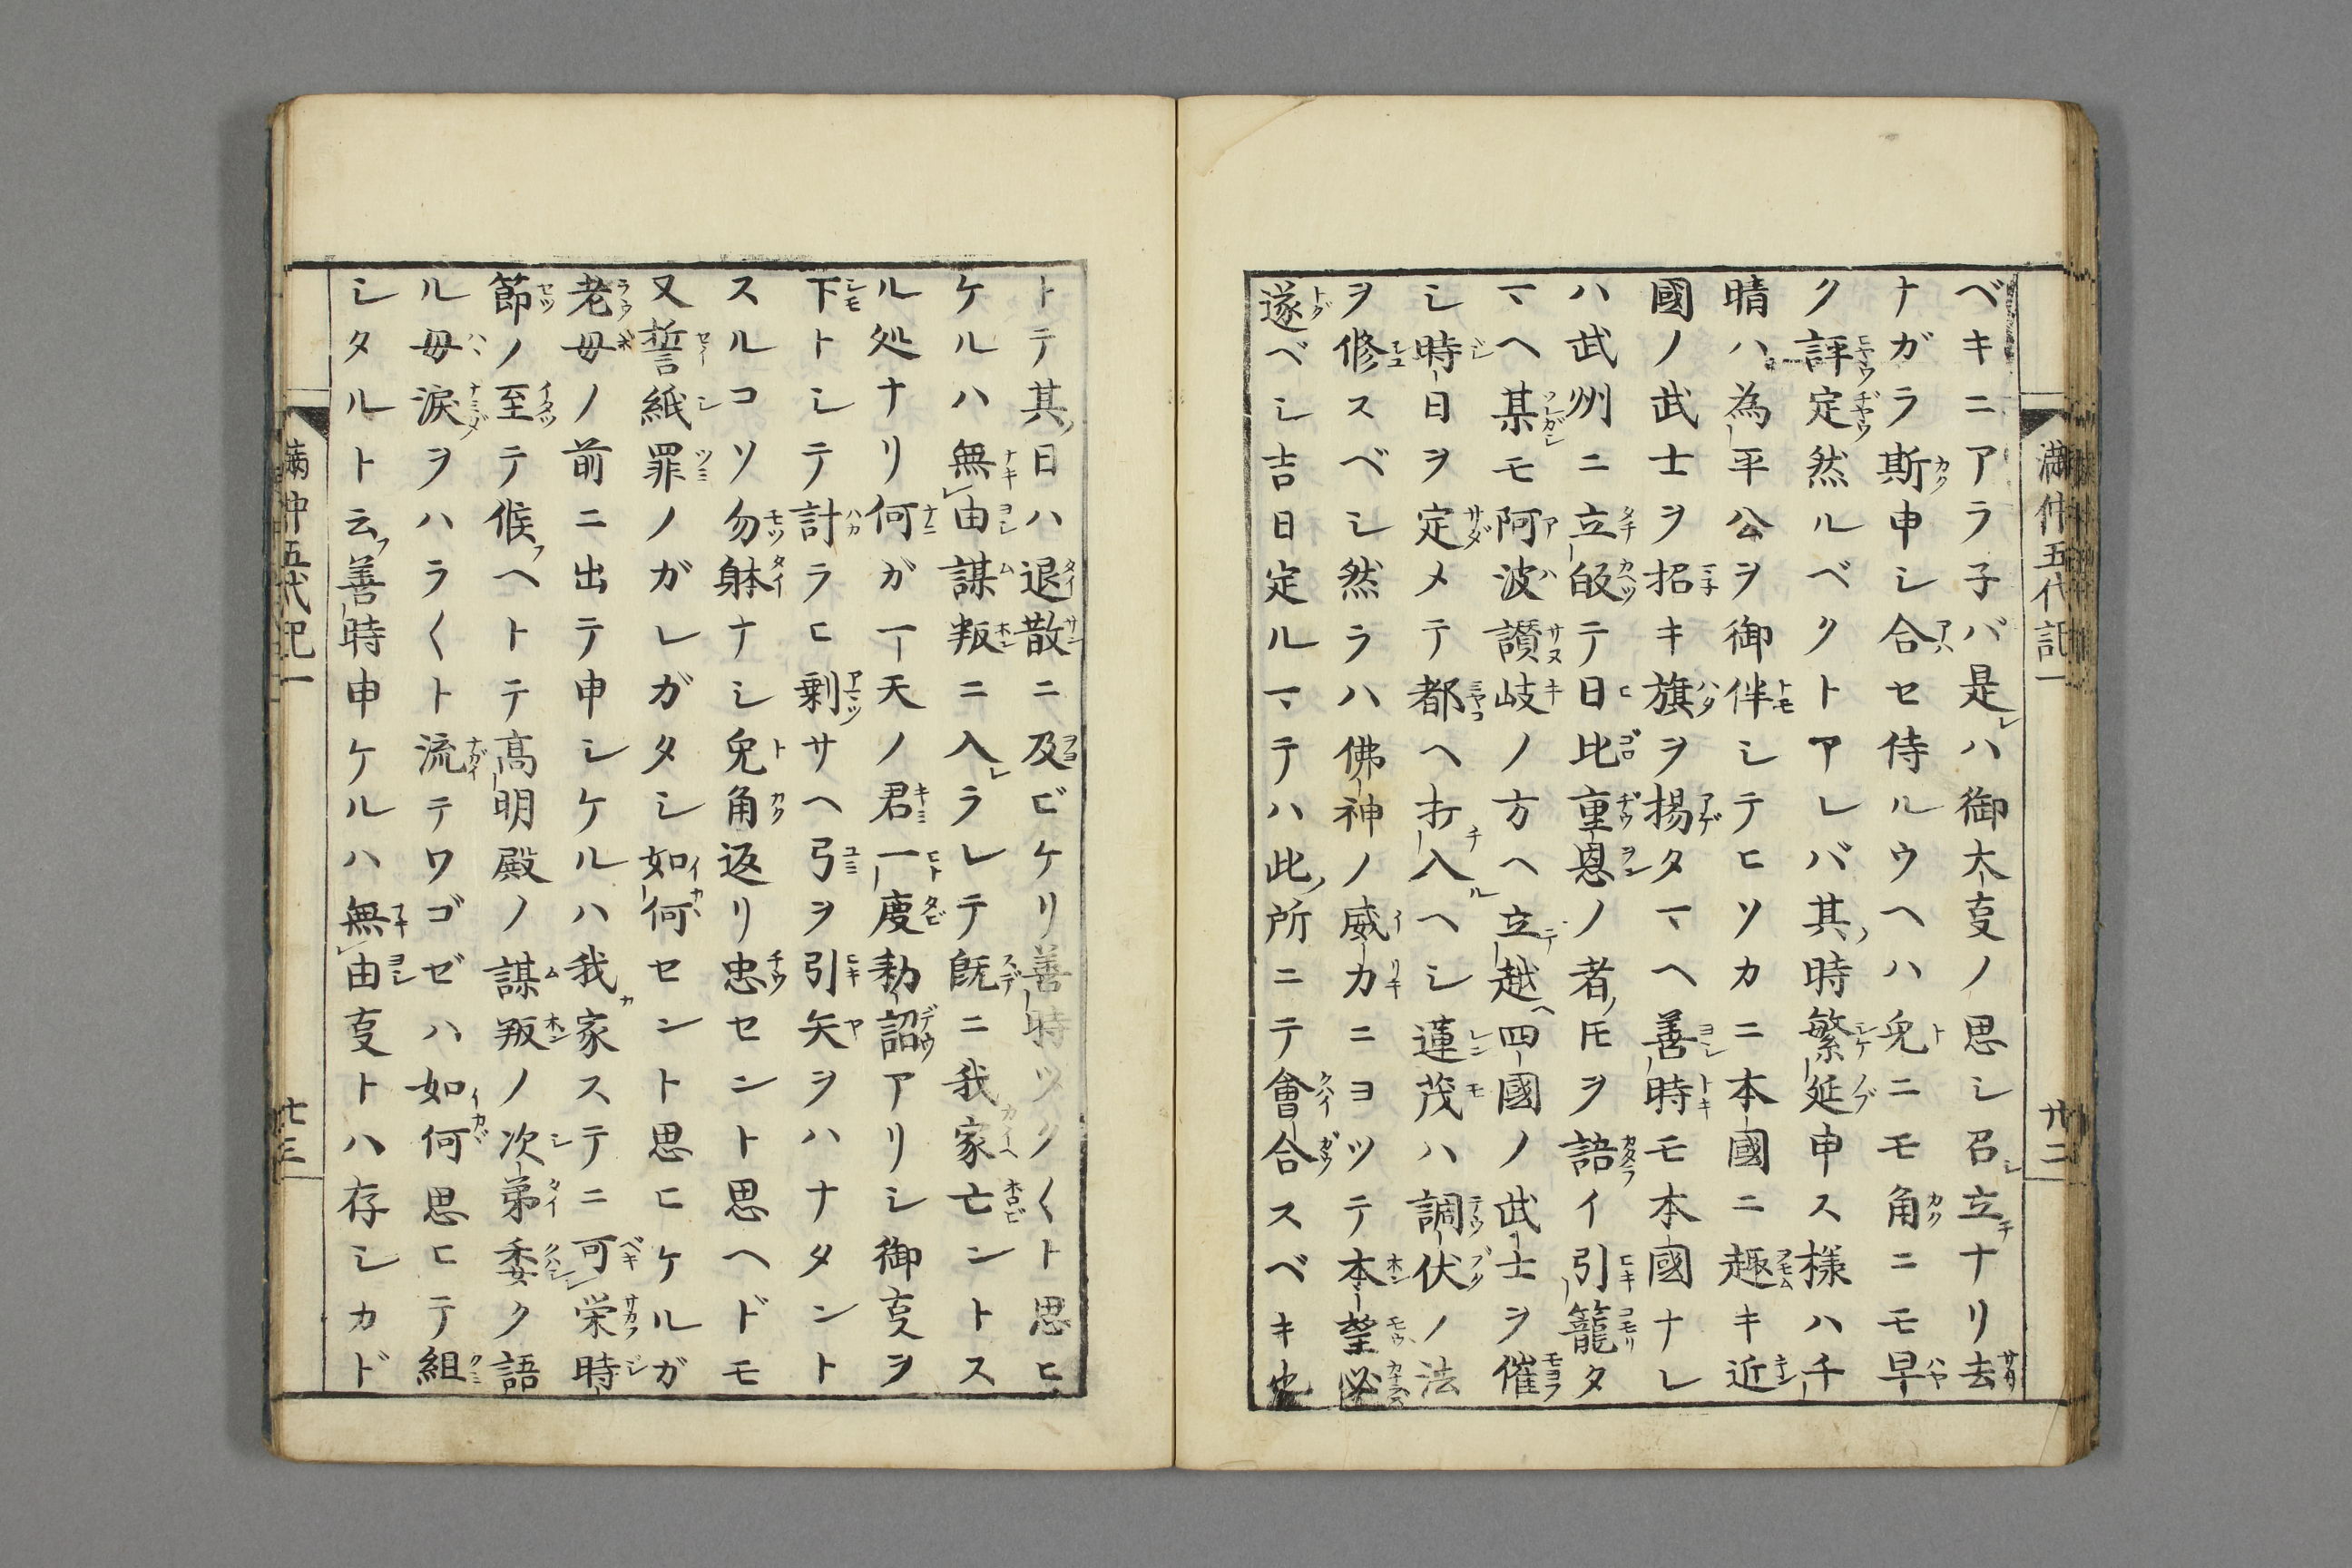 ベキニアラ子バ是レハ御大𫝑ノ思シ召シ立チナリ去
ナガラ斯申シ合セ侍ルウヘハ兎ニモ角ニモ早
ク評定然ルベクトアレバ其ノ時繁延申ス様ハ千
晴ハ為平公ヲ御伴シテヒソカニ本國ニ趣キ近
國ノ武士ヲ招キ旗ヲ揚タマヘ善時モ本國ナレ
ハ武州ニ立皈テ日比重恩ノ者ノ𪜈ヲ語イ引籠タ
マヘ某モ阿波讃岐ノ方ヘ立テ越ヘ四國ノ武士ヲ催
シ時日ヲ定メテ都ヘ打チ入ルヘシ蓮茂ハ調伏ノ法
ヲ修スベシ然ラハ佛神ノ威力ニヨツテ本望必
遂ベシ吉日定ルマテハ此ノ所ニテ會合スベキ也
満仲五代記一
廿二
トテ其ノ日ハ退散ニ及ビケリ善時ツク〱ト思ヒ
ケルハ無レ由謀叛ニ入レラレテ既ニ我家亡ントス
ル処ナリ何ガ一天ノ君一度勅詔アリシ御𫝑ヲ
下トシテ計ラヒ剰サヘ弓ヲ引矢ヲハナタント
スルコソ勿躰ナシ兎角返リ忠セント思ヘドモ
又誓紙罪ノガレガタシ如何セント思ヒケルガ
老母ノ前ニ出テ申シケルハ我カ家ステニ可レ栄時
節ノ至テ候フヘトテ高明殿ノ謀叛ノ次弟委ク語
ル母涙ヲハラ〱ト流テワゴゼハ如何思ヒテ組
シタルト云フ善時申ケルハ無レ由𫝑トハ存シカド
満仲五代記一
廿三